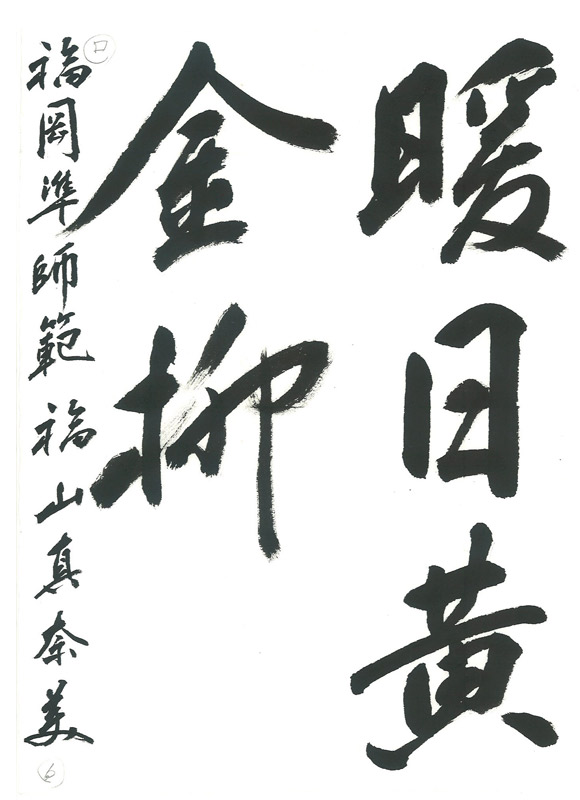 暖日黄
金柳
福岡準師範 福山真奈美
ロ
6